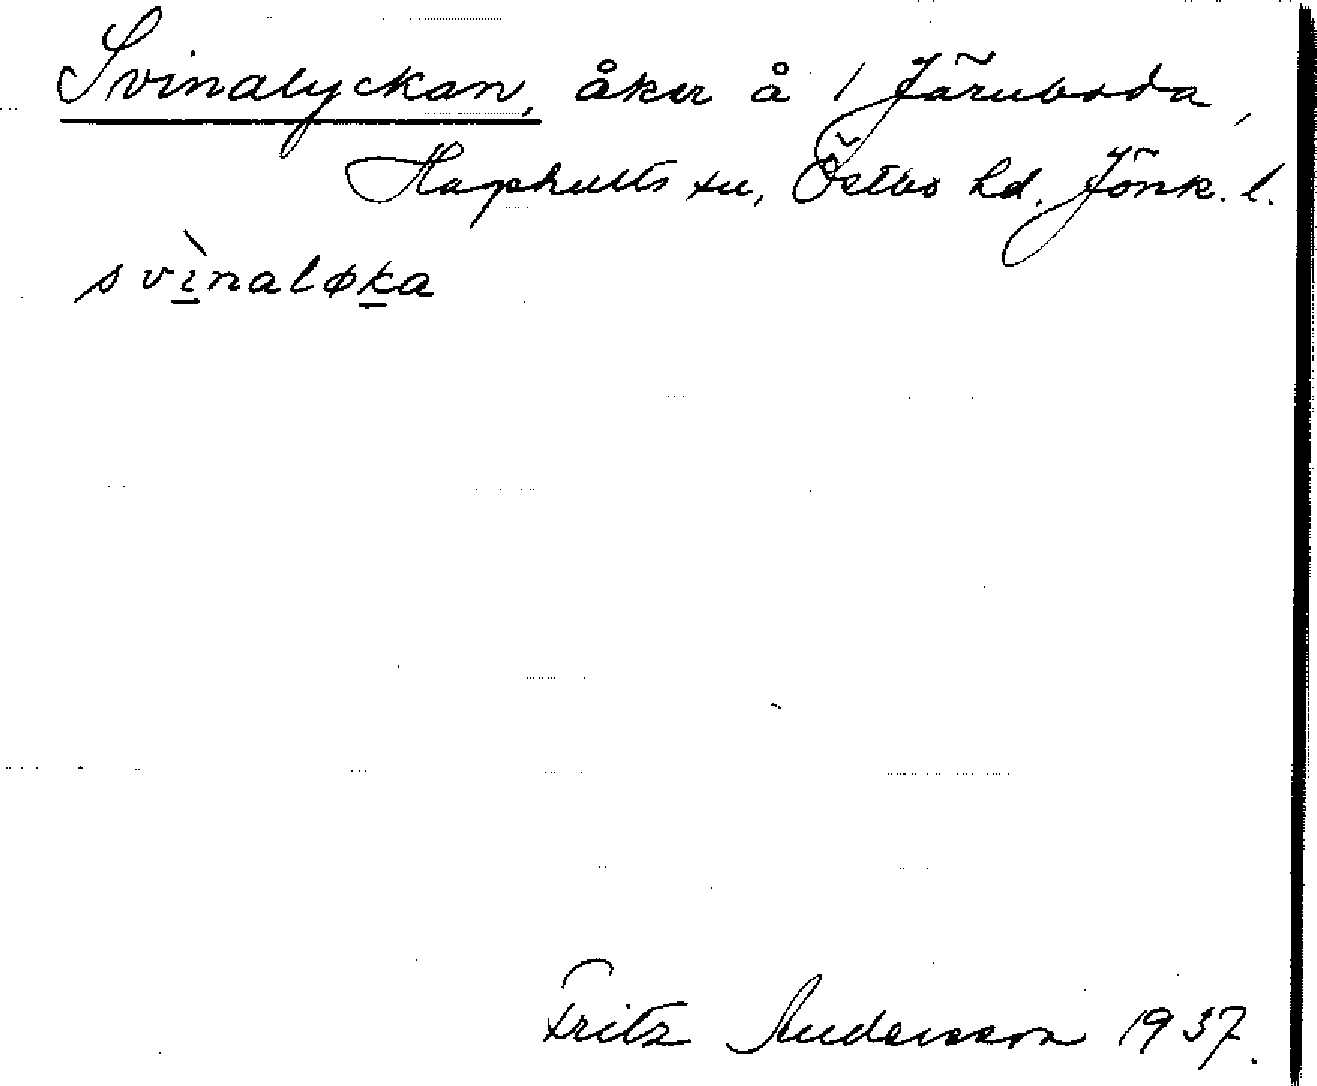 Svinalyckan, åker å 1 Järuboda,
Hagshults sn, Östbo hd. Jönk. l.
svìnaløka
Fritz Andersson 1937.